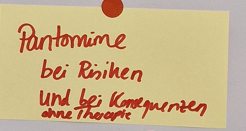 Pantomime
bei Risiken
und bei Konsequenzen
ohne Therapie